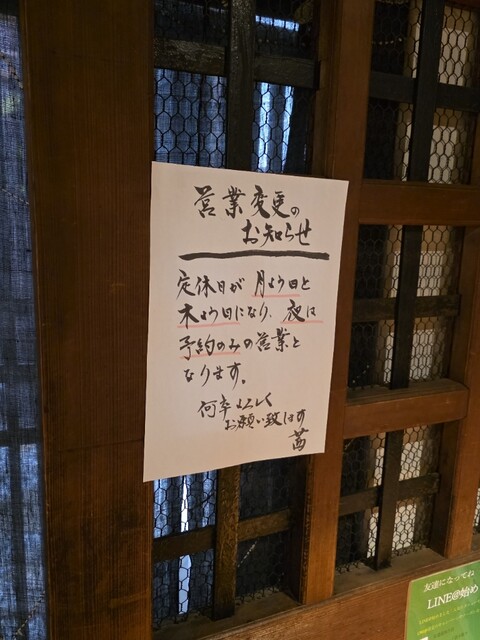 営業変更の
お知らせ
定休日が 月よう日と
木よう日になり、夜は
予約のみの営業と
なります。
何卒よろしく
お願い致します
茜
友達になってね
LINE@始め